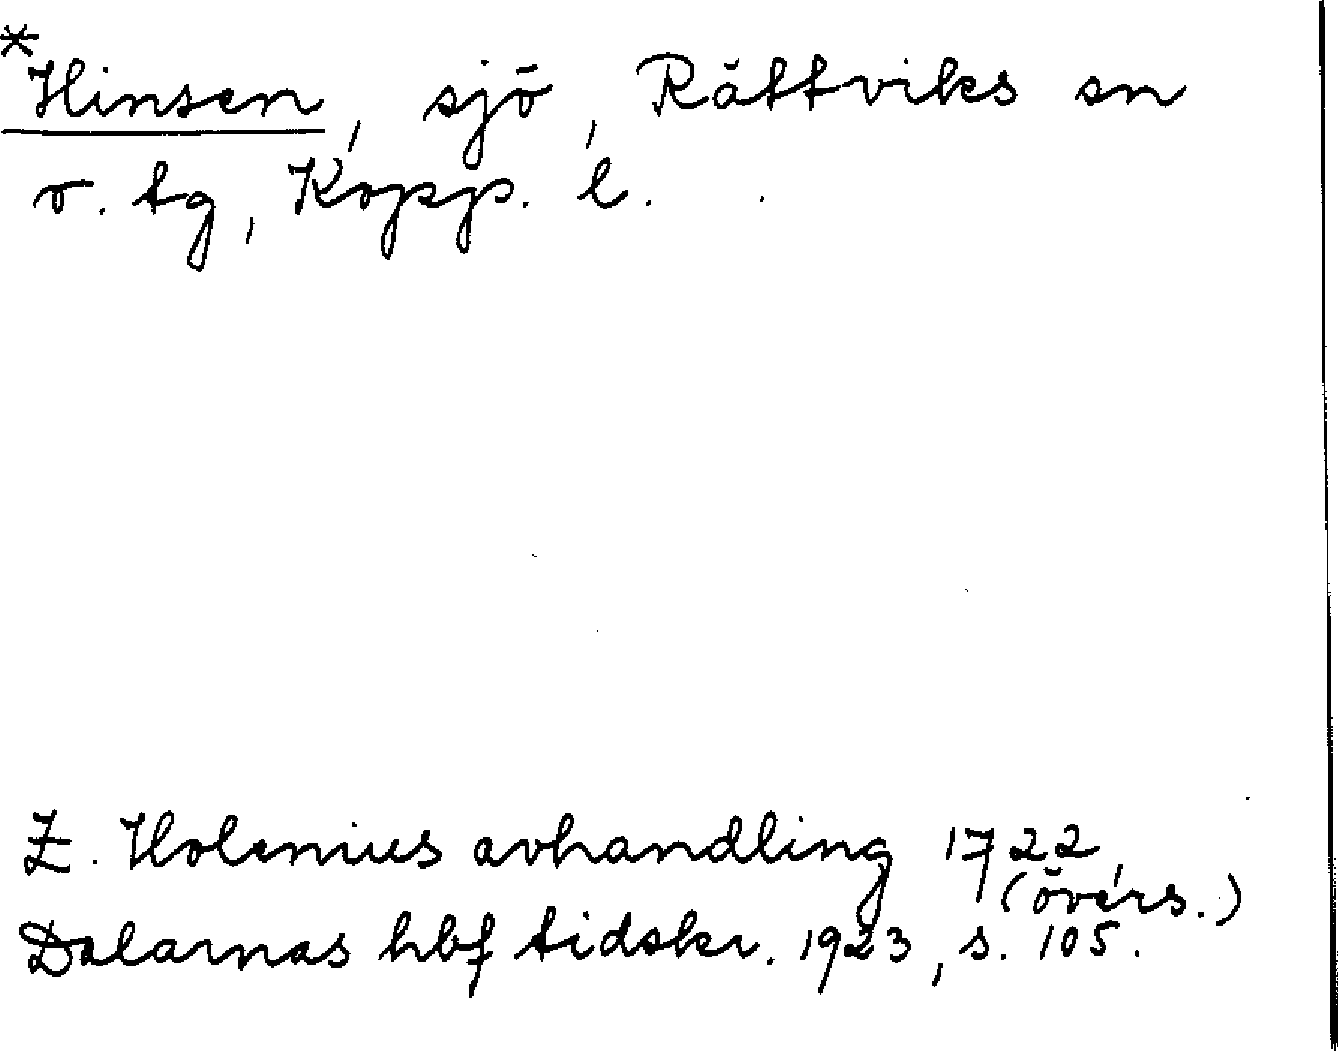 *Hinsen, sjö, Rättviks sn
o. tg, Kopp. l.
Z. Holenius avhandling 1722,
(övers.)
Dalarnas hbf tidskr. 1923, s. 105.